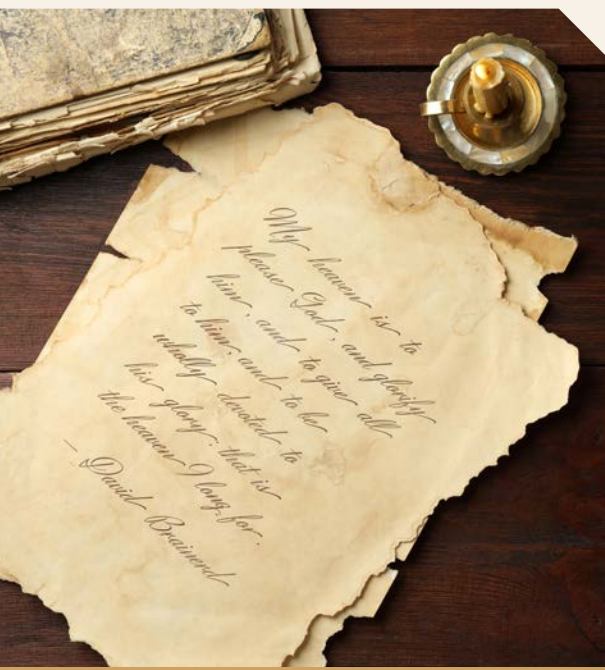 My heaven is to
please God, and glorify
him, and to give all
to him, and to be
wholly devoted to
his glory, that is
the heaven I long for.
– David Brainerd